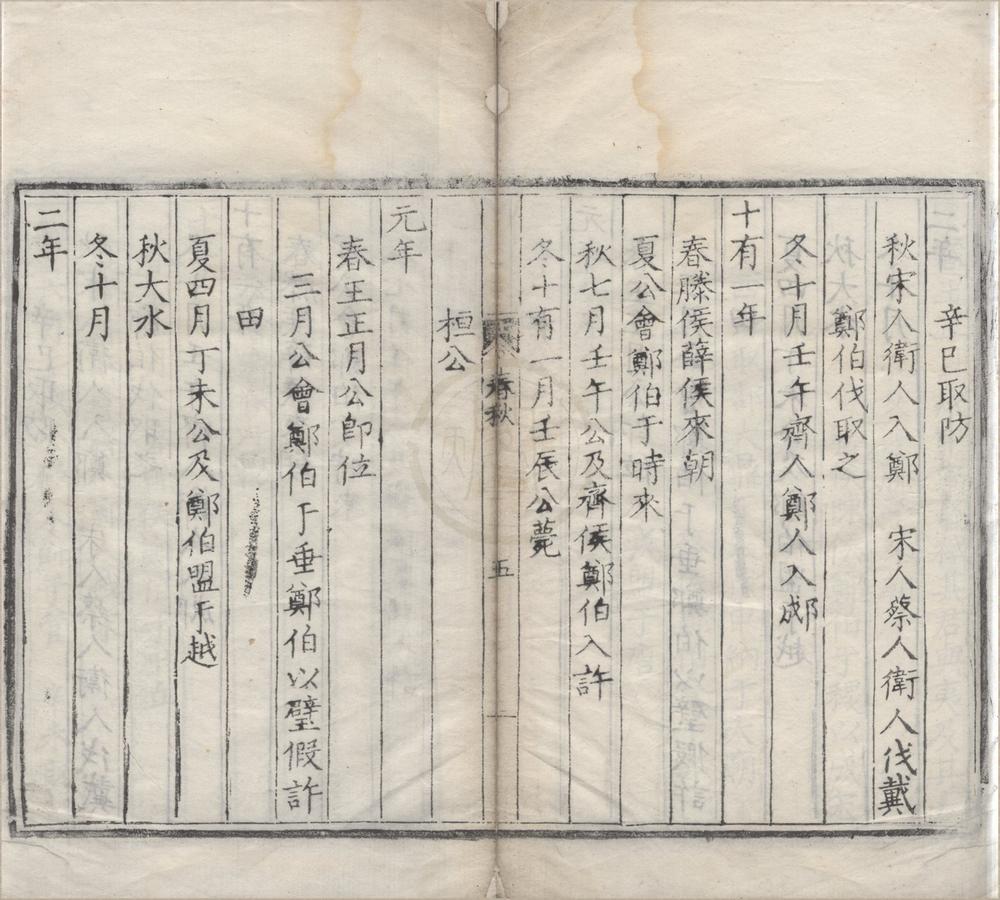 辛巳取防
秋宋人衛人入鄭　宋人蔡人衛人伐戴
鄭伯伐取之
冬十月壬午齊人鄭人入郕
十有一年
春滕侯薛侯來朝
夏公會鄭伯于時來
秋七月壬午公及齊侯鄭伯入許
冬十有一月壬辰公薨
春秋　五
桓公
元年
春王正月公即位
三月公會鄭伯于垂鄭伯以璧假許
田
夏四月丁未公及鄭伯盟于越
秋大水
冬十月
二年